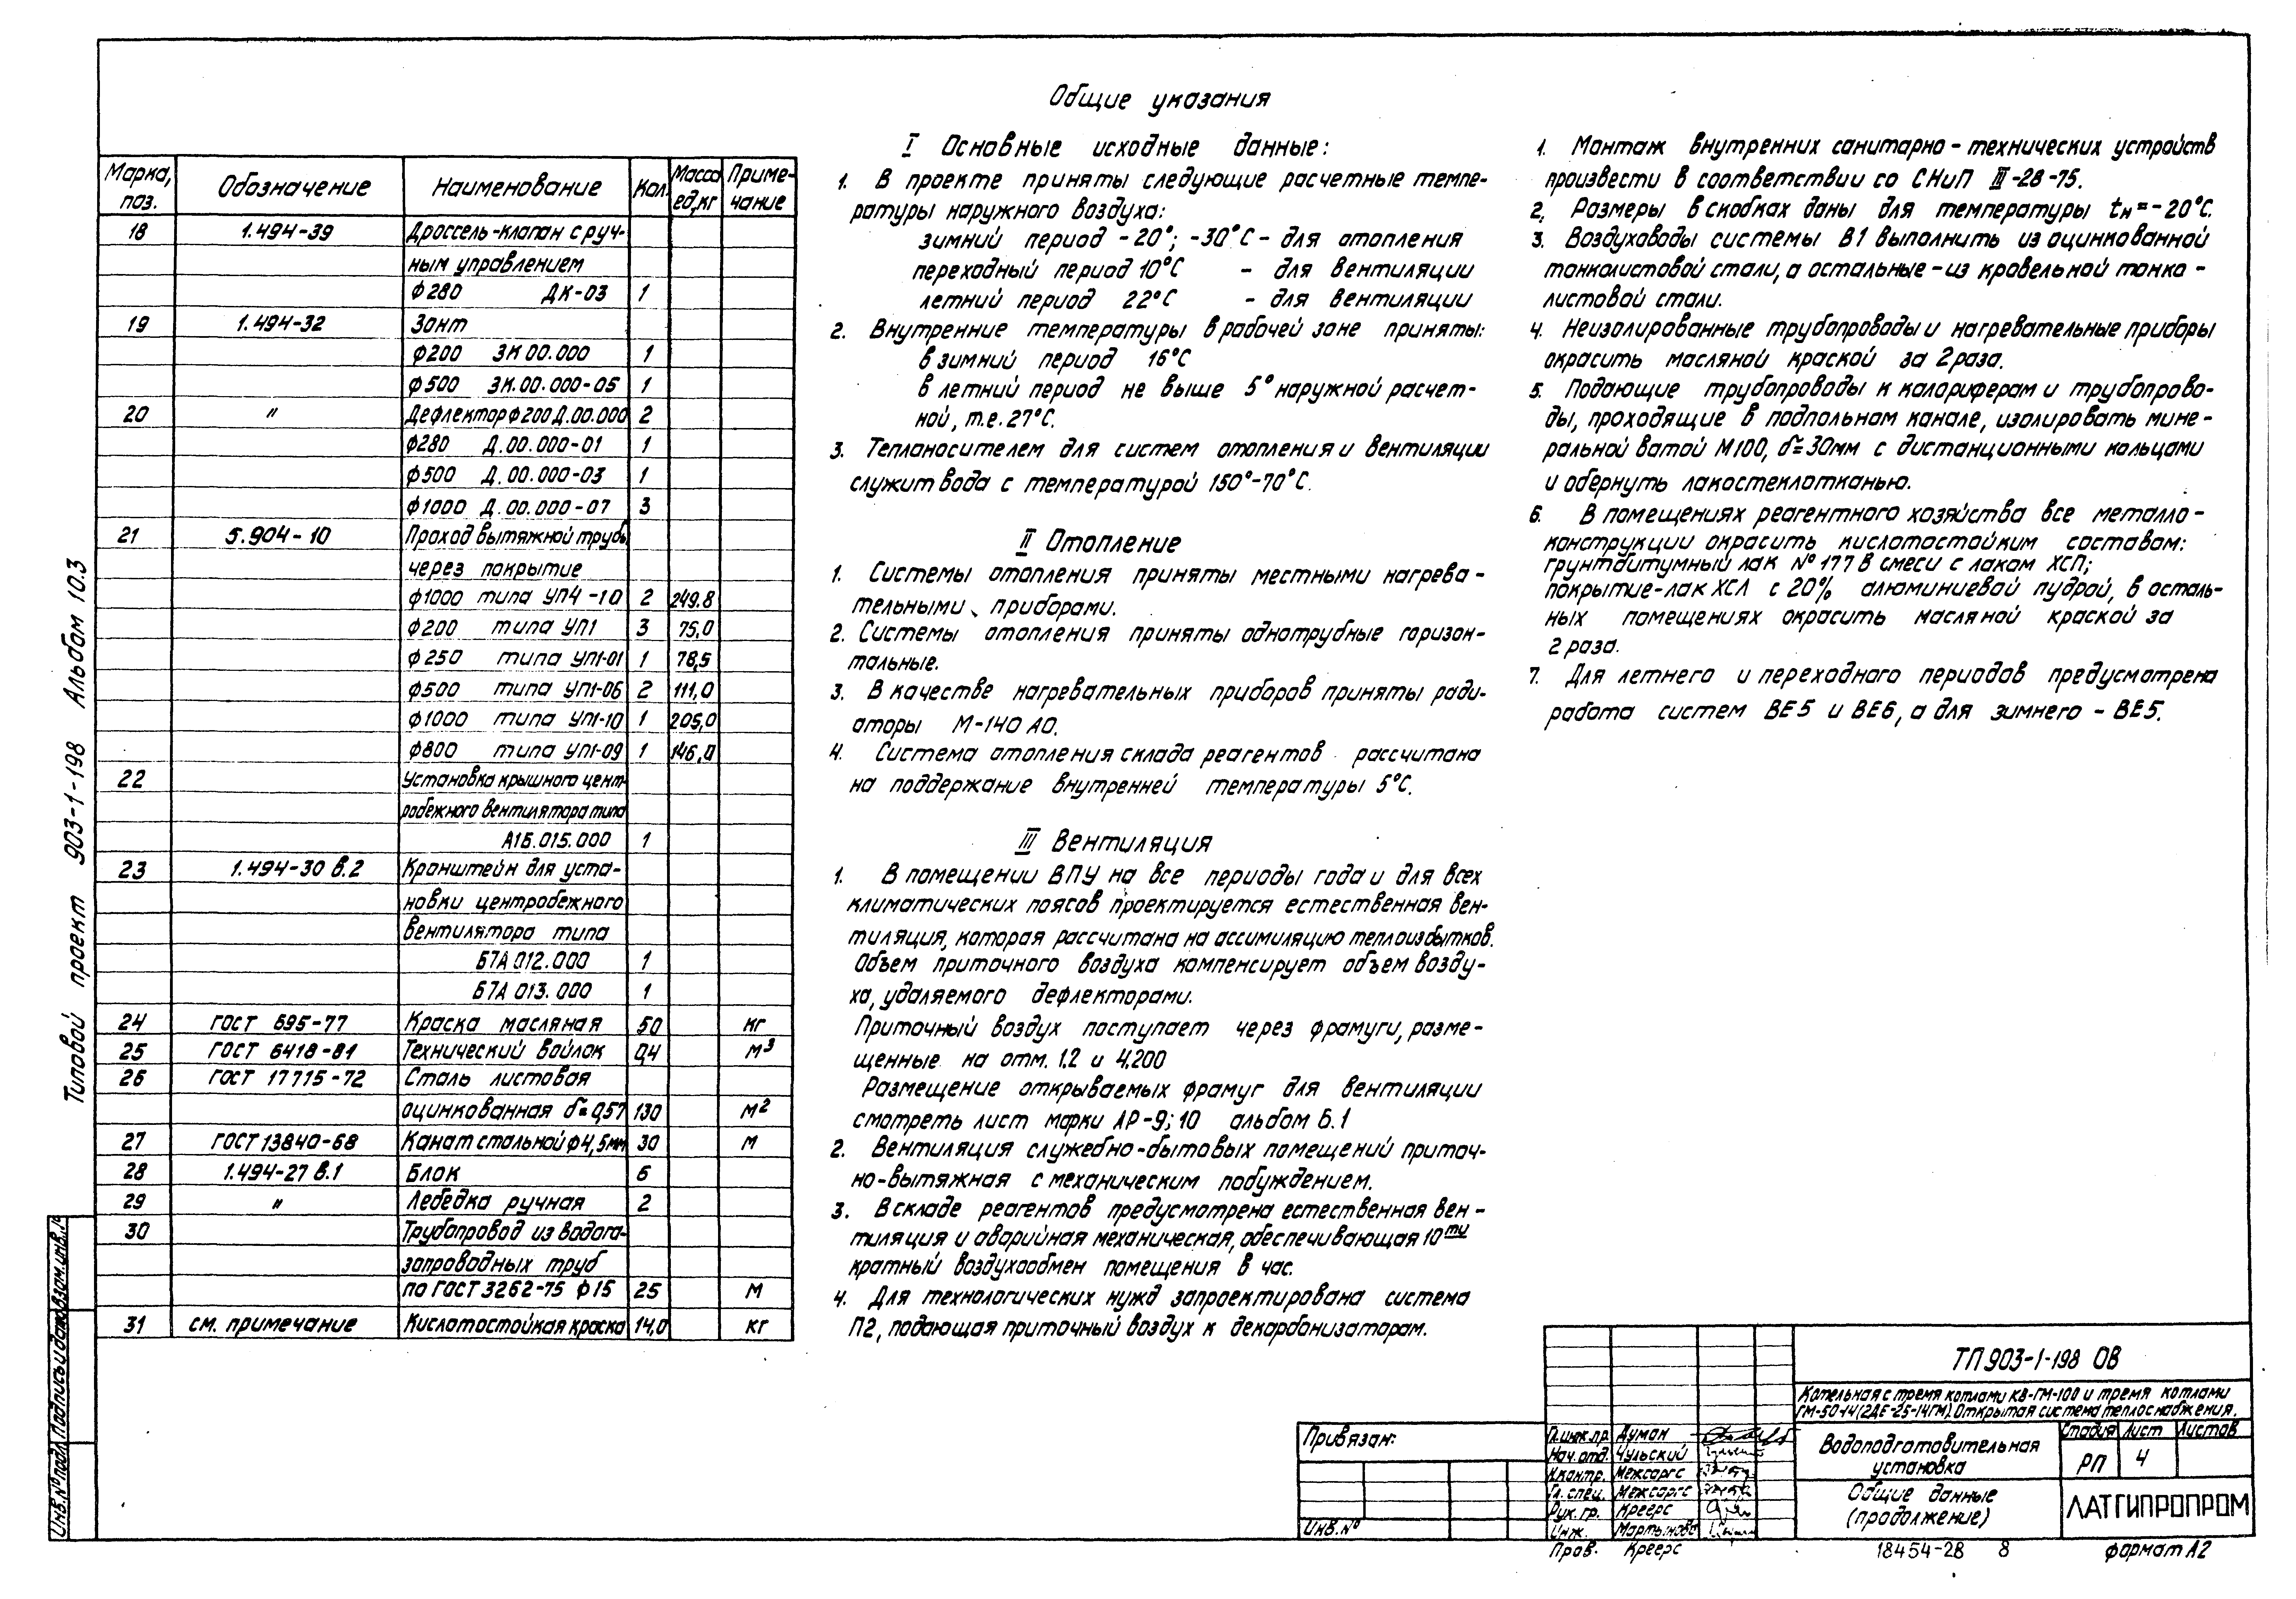 Общие указания
Марка, поз. Обозначение Наименование Кол. Масса ед,кг Приме-чание
18 1.494-39 Дроссель-клапан с руч-
ным управлением
ф280 ДК-03 1
19 1.494-32 Зонт
ф200 ЗК 00.000 1
ф500 ЗК.00.000-05 1
20 " Дефлектор ф200 Д.00.000 2
ф280 Д.00.000-01 1
ф500 Д.00.000-03 1
ф1000 Д.00.000-07 3
21 5.904-10 Проход вытяжной трубы
через покрытие
ф1000 типа УП4-10 2 249.8
ф200 типа УП1 3 75,0
ф250 типа УП1-01 1 78,5
ф500 типа УП1-06 2 111,0
ф1000 типа УП1-10 1 205,0
ф800 типа УП1-09 1 146,0
22 Установка крышного цент-
робежного вентилятора типа
А16.015.000 1
23 1.494-30 в.2 Кронштейн для уста-
новки центробежного
вентилятора типа
Б7А 012.000 1
Б7А 013.000 1
24 ГОСТ 695-77 Краска масляная 50 кг
25 ГОСТ 6418-81 Технический войлок 0,4 м3
26 ГОСТ 17715-72 Сталь листовая
оцинкованная δ=0,57 130 м2
27 ГОСТ 13840-68 Канат стальной ф4,5мм 30 м
28 1.494-27 в.1 Блок 6
29 " Лебедка ручная 2
30 Трубопровод из водога-
запроводных труб
по ГОСТ 3262-75 ф15 25 м
31 см. примечание Кислотостойкая краска 14,0 кг
I Основные исходные данные:
1. В проекте приняты следующие расчетные темпе-
ратуры наружного воздуха:
зимний период -20°; -30°С - для отопления
переходный период 10°С - для вентиляции
летний период 22°С - для вентиляции
2. Внутренние температуры в рабочей зоне приняты:
в зимний период 16°С
в летний период не выше 5° наружной расчет-
ной, т.е. 27°С.
3. Теплоносителем для систем отопления и вентиляции
служит вода с температурой 150°-70°С.
II Отопление
1. Системы отопления приняты местными нагрева-
тельными приборами.
2. Системы отопления приняты однотрубные горизон-
тальные.
3. В качестве нагревательных приборов приняты ради-
аторы М-140 АО.
4. Система отопления склада реагентов рассчитана
на поддержание внутренней температуры 5°С.
III Вентиляция
1. В помещении ВПУ на все периоды года и для всех
климатических поясов проектируется естественная вен-
тиляция, которая рассчитана на ассимиляцию теплоизбытков.
Объем приточного воздуха компенсирует объем возду-
ха, удаляемого дефлекторами.
Приточный воздух поступает через фрамуги, разме-
щенные на отм. 1.2 и 4.200
Размещение открываемых фрамуг для вентиляции
смотреть лист марки АР-9;10 альбом 6.1
2. Вентиляция служебно-бытовых помещений приточ-
но-вытяжная с механическим побуждением.
3. В складе реагентов предусмотрена естественная вен-
тиляция и аварийная механическая, обеспечивающая 10ти
кратный воздухообмен помещения в час.
4. Для технологических нужд запроектирована система
П2, подающая приточный воздух к декарбонизаторам.
1. Монтаж внутренних санитарно-технических устройств
произвести в соответствии со СНиП III-28-75.
2. Размеры в скобках даны для температуры tн=-20°С.
3. Воздуховоды системы В1 выполнить из оцинкованной
тонколистовой стали, а остальные - из кровельной тонко-
листовой стали.
4. Неизолированные трубопроводы и нагревательные приборы
окрасить масляной краской за 2 раза.
5. Подающие трубопроводы к калориферам и трубопрово-
ды, проходящие в подпольном канале, изолировать мине-
ральной ватой М100, δ=30мм с дистанционными кольцами
и обернуть лакостеклотканью.
6. В помещениях реагентного хозяйства все металло-
конструкции окрасить кислотостойким составом:
грунтбитумный лак №177 в смеси с лаком ХСП;
покрытие-лак ХСЛ с 20% алюминиевой пудрой, в осталь-
ных помещениях окрасить масляной краской за
2 раза.
7. Для летнего и переходного периодов предусмотрена
работа систем ВЕ5 и ВЕ6, а для зимнего - ВЕ5.
Типовой проект 903-1-198 Альбом 10.3
Инв.№ подл. Подпись и дата Взам.инв.№
Привязан:
Инв.№
ТП 903-1-198 ОВ
Котельная с тремя котлами КВ-ГМ-100 и тремя котлами
ГМ-50-14(2ДЕ-25-14ГМ). Открытая система теплоснабжения.
Гл.инж.пр. Думан
Нач.отд. Чульский
Н.контр. Межсаргс
Гл.спец. Межсаргс
Рук.гр. Креерс
Инж. Мартынова
Пров. Креерс
Водоподготовительная
установка
Стадия Лист Листов
РП 4
Общие данные
(продолжение)
ЛАТГИПРОПРОМ
18454-28 8 формат А2